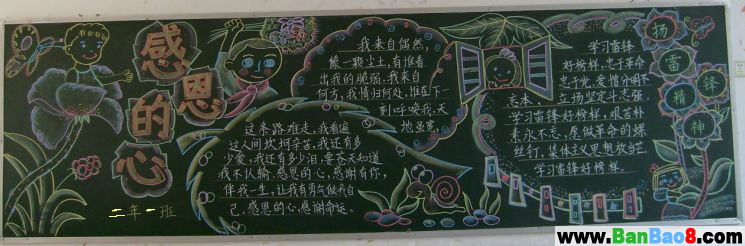 感恩的心
二年一班
我来自偶然,
像一颗尘土,有谁看
出我的脆弱.我来自
何方,我情归何处,谁在下一
刻呼唤我,天
地虽宽
这条路难走,我看遍
这人间坎坷辛苦.我还有多
少爱,我还有多少泪.要苍天知道
我不认输.感恩的心,感谢有你,
伴我一生,让我有勇气做我自
己.感恩的心,感谢命运。
学习雷锋
好榜样,忠于革命
忠于党.爱憎分明不
忘本,立场坚定斗志强.
学习雷锋好榜样,艰苦朴
素永不忘.愿做革命的螺
丝钉,集体主义思想放光芒
学习雷锋好榜样.
扬
雷
锋
精
神
www.BanBao8.com